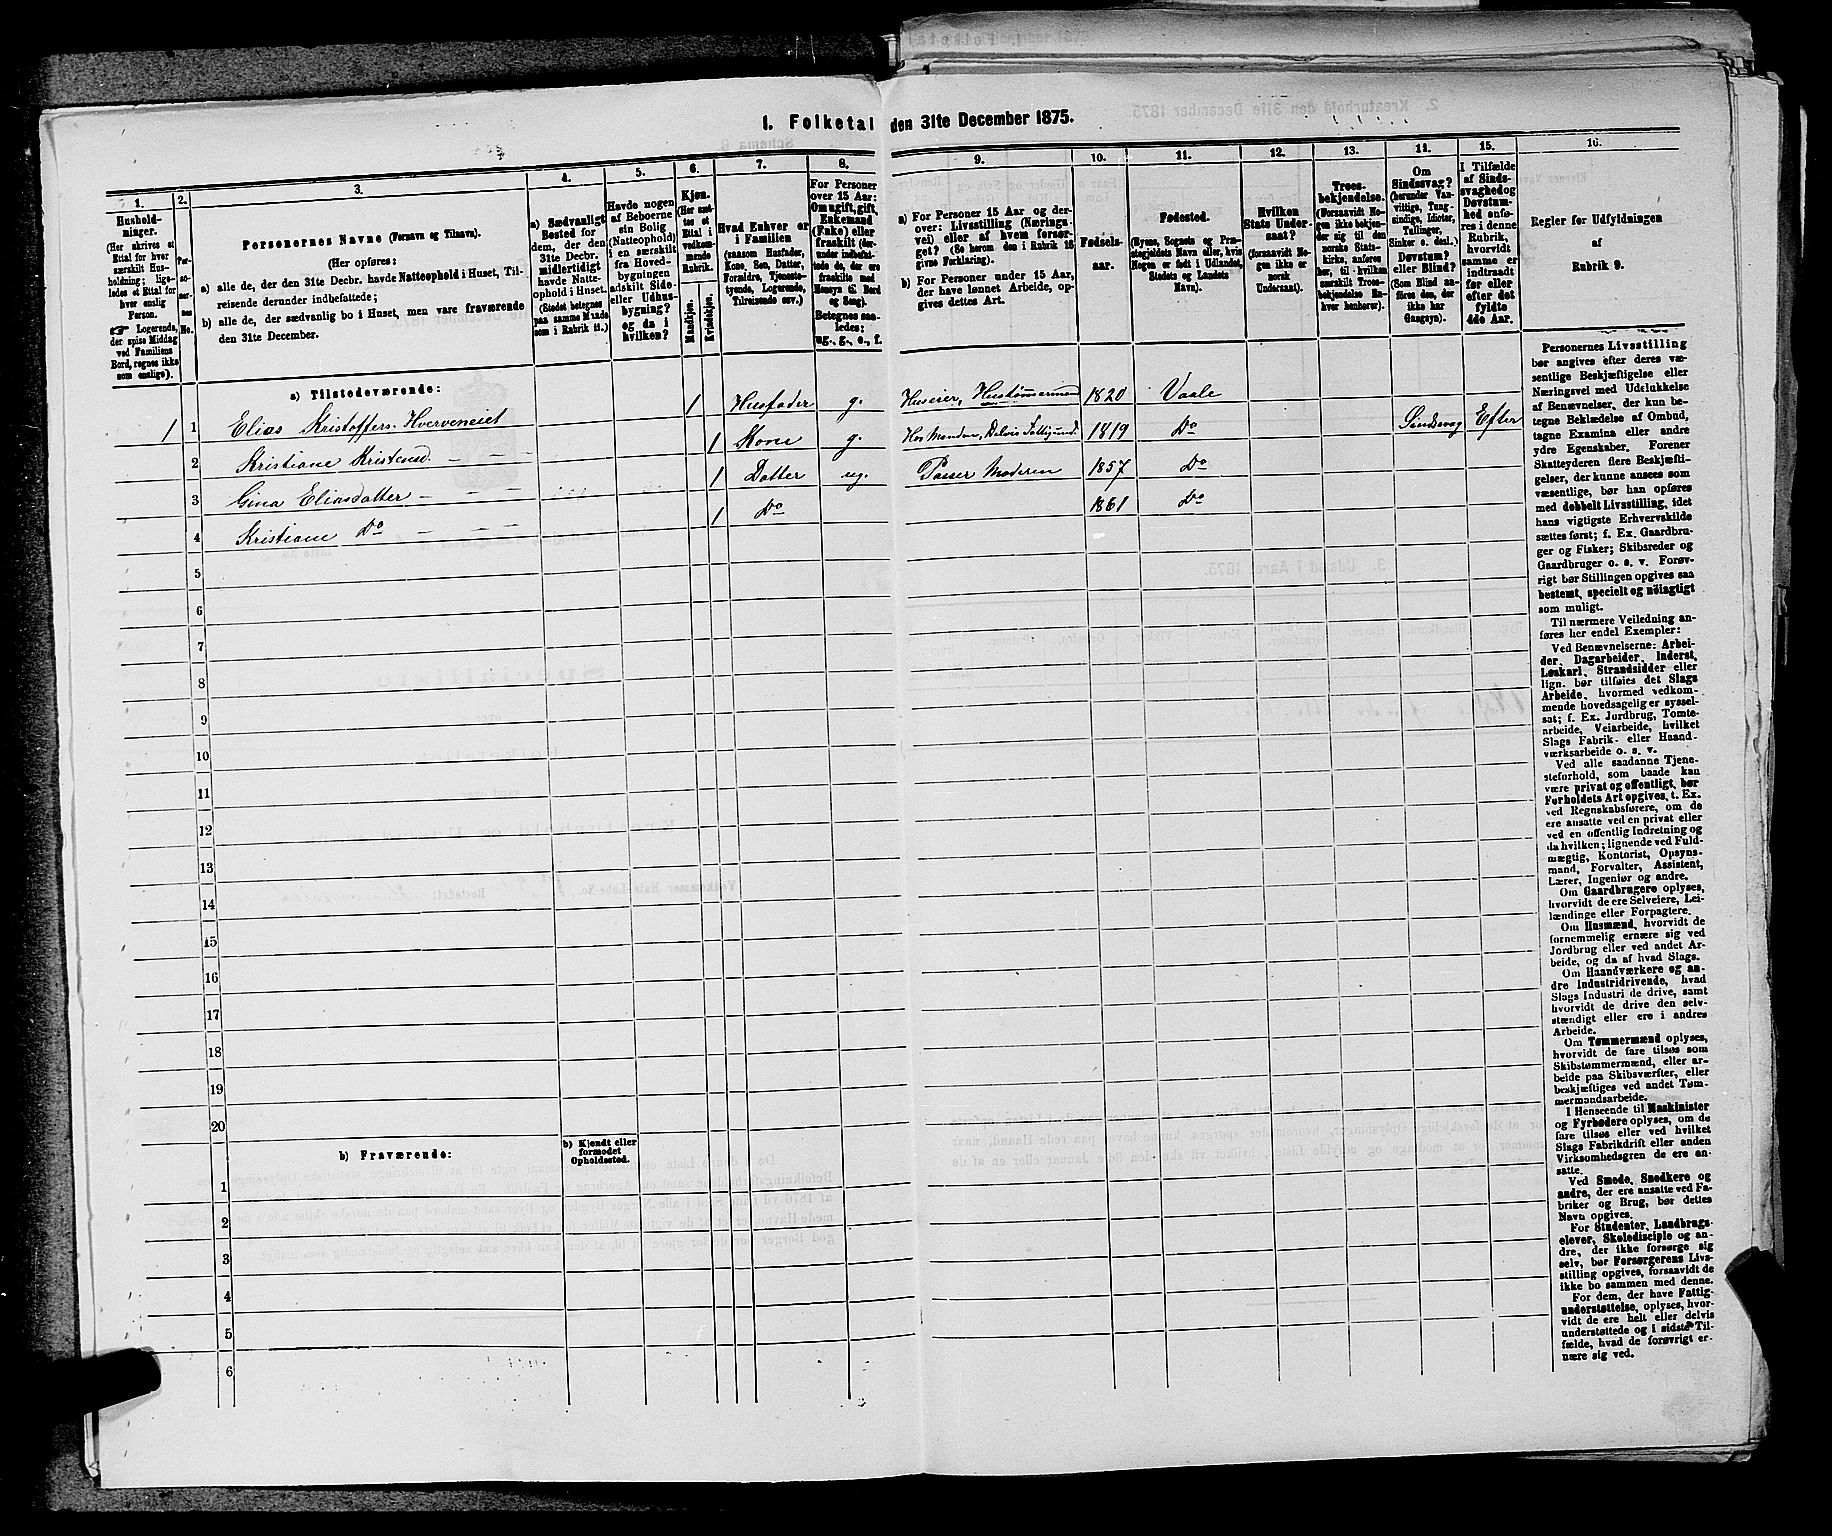 I. Folketal den 31te December 1875.
1.
Husholdninger.
(Her skrives et
Ettal for hver
særskilt Husholdning; ligeledes et Ettal for
hver enslig
Person.
☞ Logerende,
der spise Middag
ved Familiens
Bord, regnes ikke
som enslige).
2.
Personernes
No.
3.
Personernes Navne (Fornavn og Tilnavn).
(Her opføres:
a) alle de, der den 31te Decbr. havde Natteophold i Huset, Tilreisende derunder indbefattede;
b) alle de, der sædvanlig bo i Huset, men vare fraværende
den 31te December.
4.
a) Sædvanligt
Bosted for
dem, der den
31te Decbr.
midlertidigt
havde Natteophold i Huset.
(Stedet betegnes
paa samme Maade
som i Rubrik 11.)
5.
Havde nogen
af Beboerne
sin Bolig
(Natteophold)
i en særskilt
fra Hovedbygningen
adskilt Side- eller Udhusbygning?
og da i
hvilken?
6.
Kjøn.
(Her sættes et
Ettal i
vedkommende
Rubrik.
Mandkjøn.
Kvindekjøn.
7.
Hvad Enhver er
i Familien
(saasom Husfader,
Kone, Søn, Datter,
Forældre, Tjenestetyende, Logerende,
Tilreisende osv.)
8.
For Personer
over 15 Aar:
Om ugift, gift,
Enkemand
(Enke) eller
fraskilt (derunder indbefattede de, der ere
fraskilte med
Hensyn til Bord
og Seng).
Betegnes saaledes:
ug., g., e., f.
9.
a) For Personer 15 Aar og derover: Livsstilling (Næringsvei) eller af hvem forsørget? (Se herom den i Rubrik 16
givne Forklaring).
b) For Personer under 15 Aar,
der have lønnet Arbeide, opgives dettes Art.
10.
Fødselsaar.
11.
Fødested.
(Byens, Sognets og Præstegjeldets Navn eller, hvis
Nogen er født i Udlandet,
Stedets og Landets
Navn).
12.
Hvilken
Stats Undersaat?
(forsaavidt Nogen ikke er
norsk
Undersaat).
13.
Troesbekjendelse.
(Forsaavidt Nogen ikke bekjender sig til den
norske Statskirke, anføres
her, til hvilken
særskilt Troesbekjendelse Enhver henhører).
14.
Om
Sindssvag?
(herunder Vanvittige, Tungsindige, Idioter,
Tullinger,
Sinker o. desl.)
Døvstum?
eller Blind?
(Som Blind anføres den, der
ikke har
Gangsyn).
15.
I Tilfælde
af Sindssvaghed og
Døvstumhed anføres i denne
Rubrik,
hvorvidt
samme er
indtraadt
før eller
efter det
fyldte
4de Aar.
16.
Regler for Udfyldningen
af
Rubrik 9.
a) Tilstedeværende:
1 1 Elias Kristoffers. Hverveneiet 1 Husfader g. Huseier, Hustømmermand 1820 Vaale
2 Kristiane Kristensd. — — 1 Kone g. Hos Manden, Delvis Fattigund. 1819 Do Sindssvag Efter
3 Gina Eliasdatter — — 1 Datter ug. Passer Moderen 1857 Do
4 Kristiane Do — — 1 Do 1861 Do
5
6
7
8
9
10
11
12
13
14
15
16
17
18
19
20
b) Fraværende:
b) Kjendt eller
formodet
Opholdssted.
1
2
3
4
5
6
Personernes Livsstilling
bør angives efter deres væsentlige Beskjæftigelse eller
Næringsvei med Udelukkelse
af Benævnelser, der kun betegne Beklædelse af Ombud,
tagne Examina eller andre
ydre Egenskaber. Forener
Skatteyderen flere Beskjæftigelser, der kunne ansees som
væsentlige, bør han opføres
med dobbelt Livsstilling, idet
hans vigtigste Erhvervskilde
sættes først; f. Ex. Gaardbruger og Fisker; Skibsreder og
Gaardbruger o. s. v. Forøvrigt bør Stillingen opgives saa
bestemt, specielt og nöiagtigt
som muligt.
Til nærmere Veiledning anføres her endel Exempler:
Ved Benævnelserne: Arbeider, Dagarbeider, Inderst,
Løskarl, Strandsidder eller
lign. bør tilføies det Slags
Arbeide, hvormed vedkommende hovedsagelig er sysselsat; f. Ex. Jordbrug, Tomtearbeide, Veiarbeide, hvilket
Slags Fabrik- eller Haandværksarbeide o. s. v.
Ved alle saadanne Tjenesteforhold, som baade kan
være privat og offentligt, bør
Forholdets Art opgives, t. Ex.
ved Regnskabsførere, om de
ere ansatte ved en privat eller
ved en offentlig Indretning og
da hvilken; lignende ved Fuldmægtig, Kontorist, Opsynsmand, Forvalter, Assistent,
Lærer, Ingeniør og andre.
Om Gaardbrugere oplyses,
hvorvidt de ere Selveiere, Leilændinge eller Forpagtere.
Om Husmænd, hvorvidt de
fornemmelig ernære sig ved
Jordbrug eller ved andet Arbeide, og da af hvad Slags.
Om Haandværkere og andre Industridrivende, hvad
Slags Industri de drive, samt
hvorvidt de drive den selvstændigt eller ere i andres
Arbeide.
Om Tømmermænd oplyses,
hvorvidt de fare tilsøs som
Skibstømmermænd, eller arbeide paa Skibsværfter, eller
beskjæftiges ved andet Tømmermandsarbeide.
I Henseende til Maskinister
og Fyrbødere oplyses, om de
fare tilsøs eller ved hvilket
Slags Fabrikdrift eller anden
Virksomhedsgren de ere ansatte.
Ved Smede, Snedkere og
andre, der ere ansatte ved Fabriker og Brug, bør dettes
Navn opgives.
For Studenter, Landbrugselever, Skoledisciple og andre, der ikke forsørge sig
selv, bør Forsørgerens Livsstilling opgives, forsaavidt de
ikke bo sammen med denne.
For dem, der have Fattigunderstøttelse, oplyses, hvorvidt de ere helt eller delvis
understøttede og i sidste Tilfælde, hvad de forøvrigt ernære sig ved.